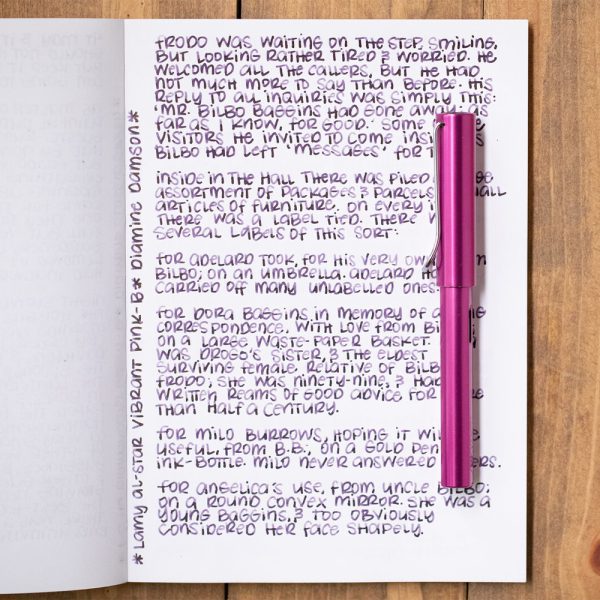 *Lamy al-star Vibrant Pink-B* Diamine Damson*
Frodo was waiting on the step, smiling,
but looking rather tired & worried. He
welcomed all the callers, but he had
not much more to say than before. His
reply to all inquiries was simply this:
'Mr. Bilbo Baggins had gone away; as
far as I know, for good.' Some
visitors he invited to come insi
Bilbo had left 'messages' for
Inside in the hall there was piled
assortment of packages & parcels
articles of furniture. On every i
there was a label tied. There
several labels of this sort:
For Adelard Took, for his very ow
Bilbo; on an umbrella. Adelard ha
carried off many unlabelled ones.
For Dora Baggins in memory of a
correspondence, with love from Bi
on a large waste-paper basket.
was Drogo's sister, & the eldest
surviving female relative of Bilb
Frodo; she was ninety-nine, & had
written reams of good advice for
than half a century.
For Milo Burrows, hoping it wi
useful, from B.B., on a gold pen
ink-bottle. Milo never answered
For Angelica's use, from Uncle Bilbo;
on a round convex mirror. She was a
young Baggins, & too obviously
considered her face shapely.